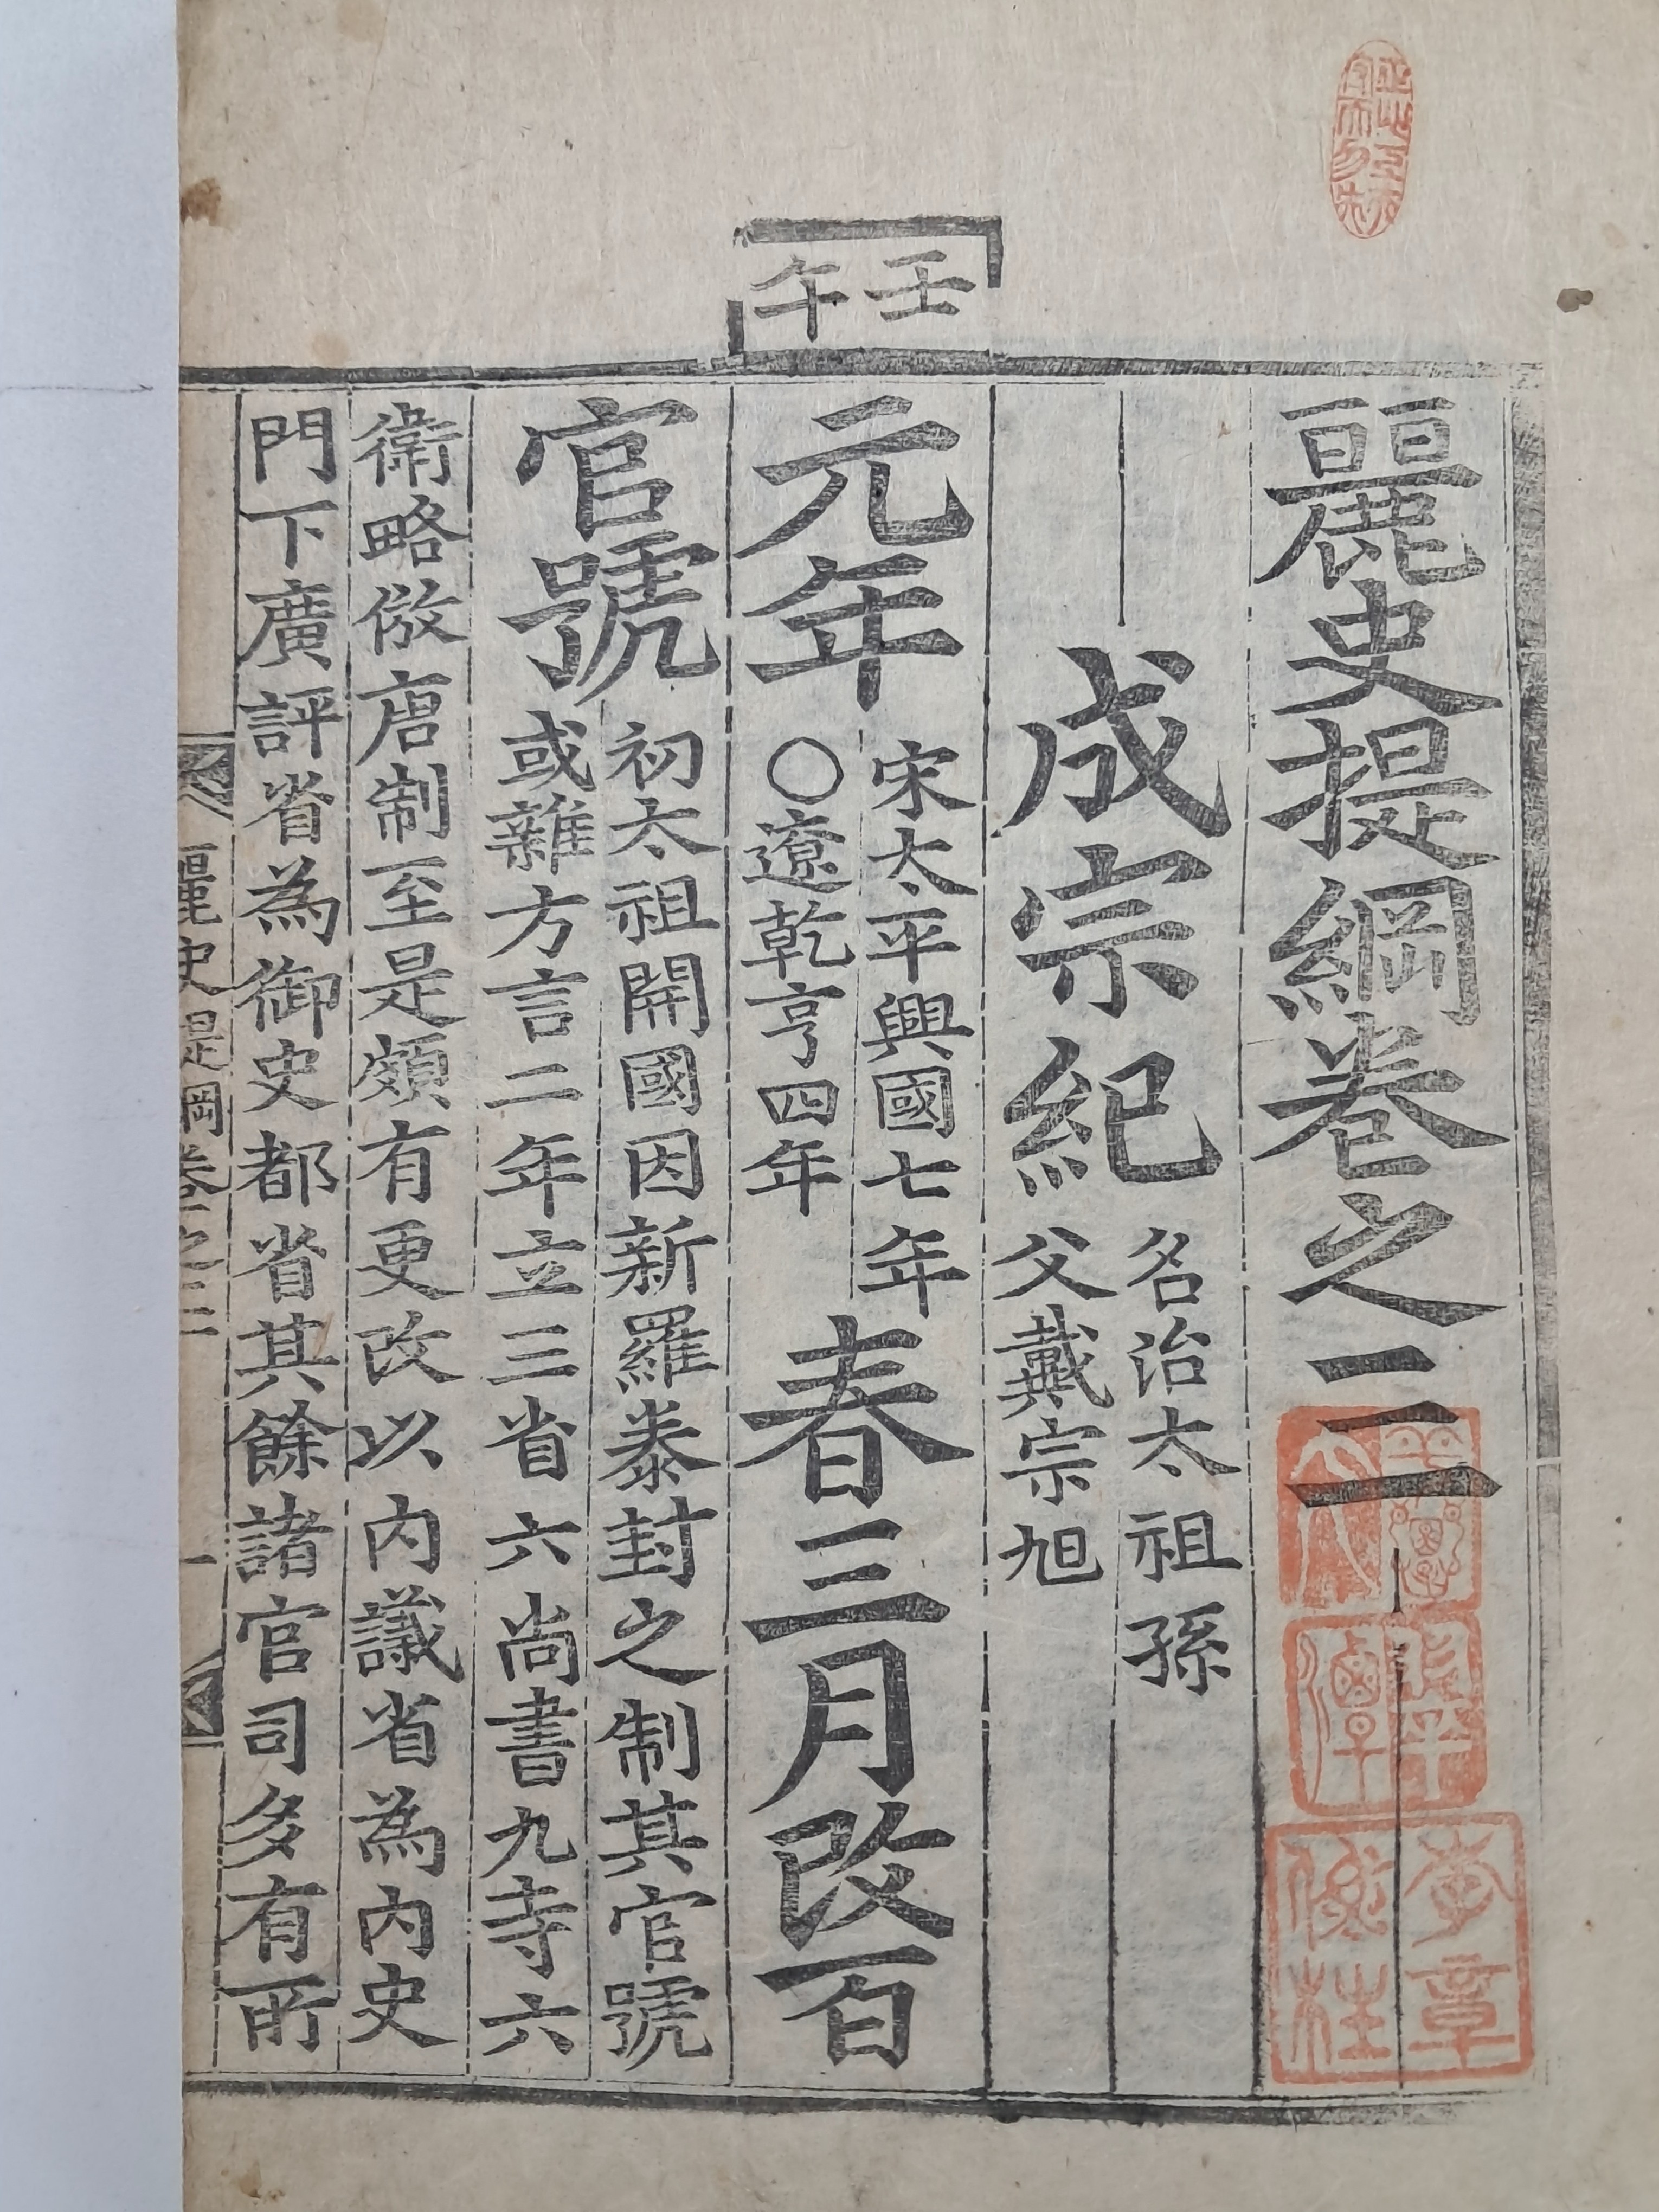 麗史提綱卷之三
成宗紀
名治太祖孫
父戴宗旭
壬午
元年
宋太平興國七年
○遼乾亨四年
春三月改百
官號
初太祖開國因新羅泰封之制其官號
或雜方言二年立三省六尚書九寺六
衛略倣唐制至是頗有更改以內議省為內史
門下廣評省為御史都省其餘諸官司多有所
麗史提綱卷之三
一